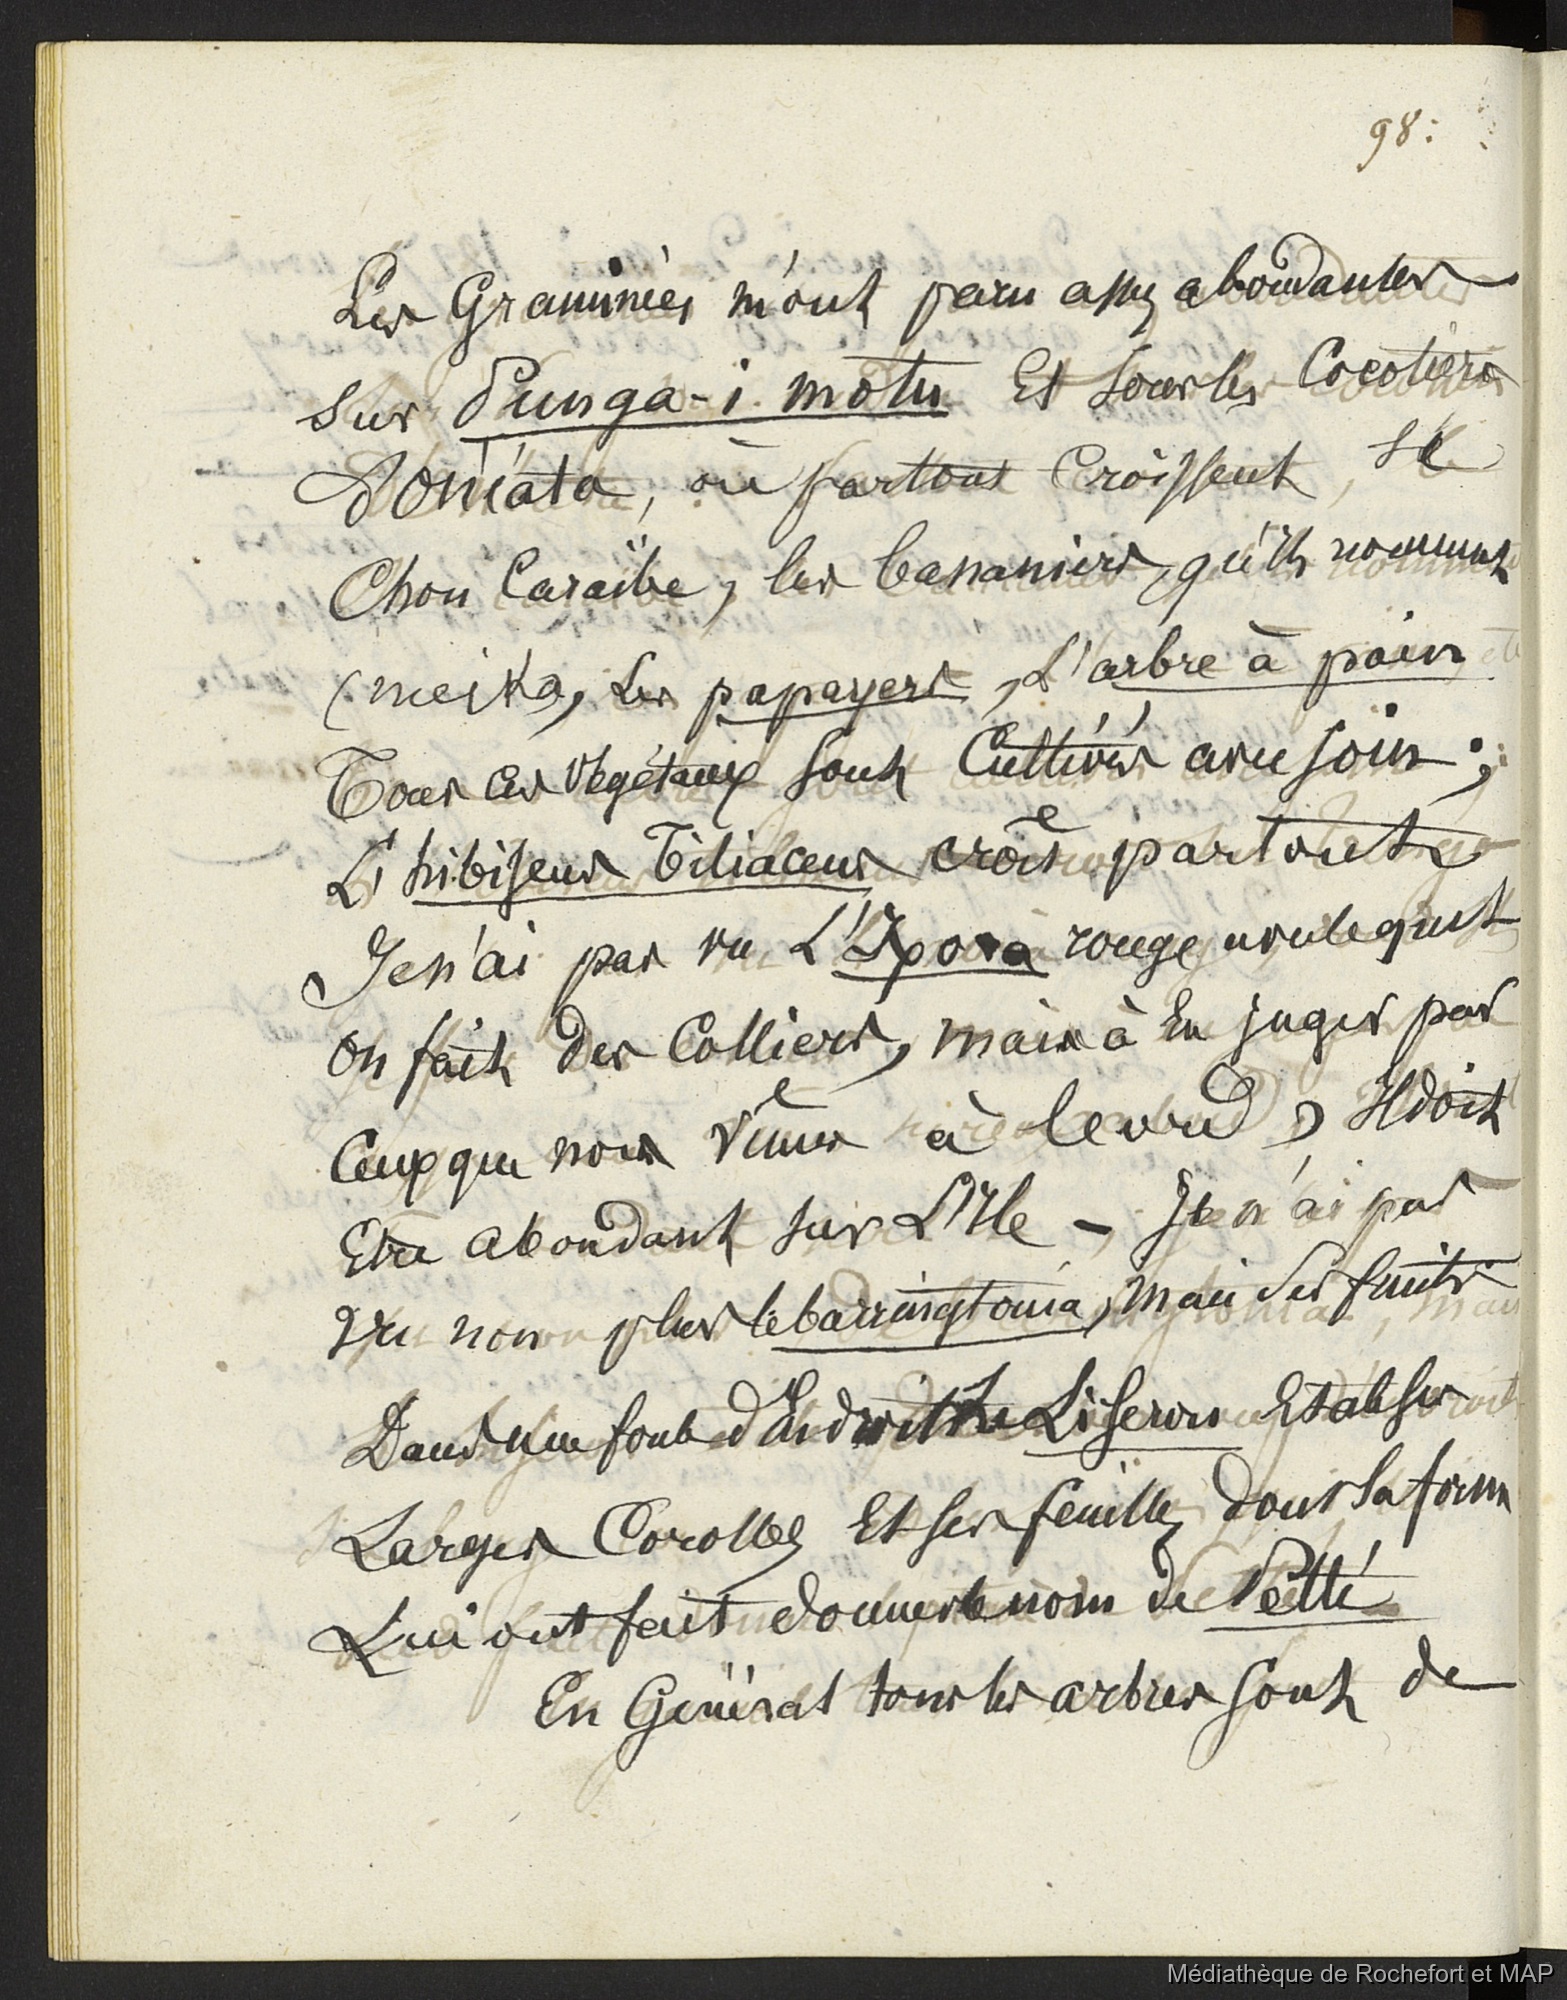 98:
Les Graminées m'ont paru assez abondantes
sur Punga-i. motu Et sous les Cocotiers
d'Oniata, où partout Croissent, le
Chou Caraïbe, les bananiers, qu'ils nomment
(meika, Les papayers, L'arbre à pain,
Tous ces Végétaux sont Cultivés avec soin;
L'hibiscus Tiliaceus croît partout
Je n'ai pas vu L'Ixora rouge avec lequel
on fait des Colliers, mais à En juger par
Ceux que nous vîmes à bord, Il doit
Etre abondant sur L'Ile - Je n'ai pas
vu non plus le barringtonia, mais ses fruits
Dans une foule d'Endroits Le Liseron Etale ses
Larges Corolles Et ses feuilles dont la forme
Lui ont fait donner le nom de Pelté
En Général tous les arbres sont de
Médiathèque de Rochefort et MAP